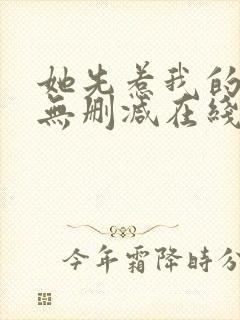 她先惹我的
無删减在綫
今年霜降時分